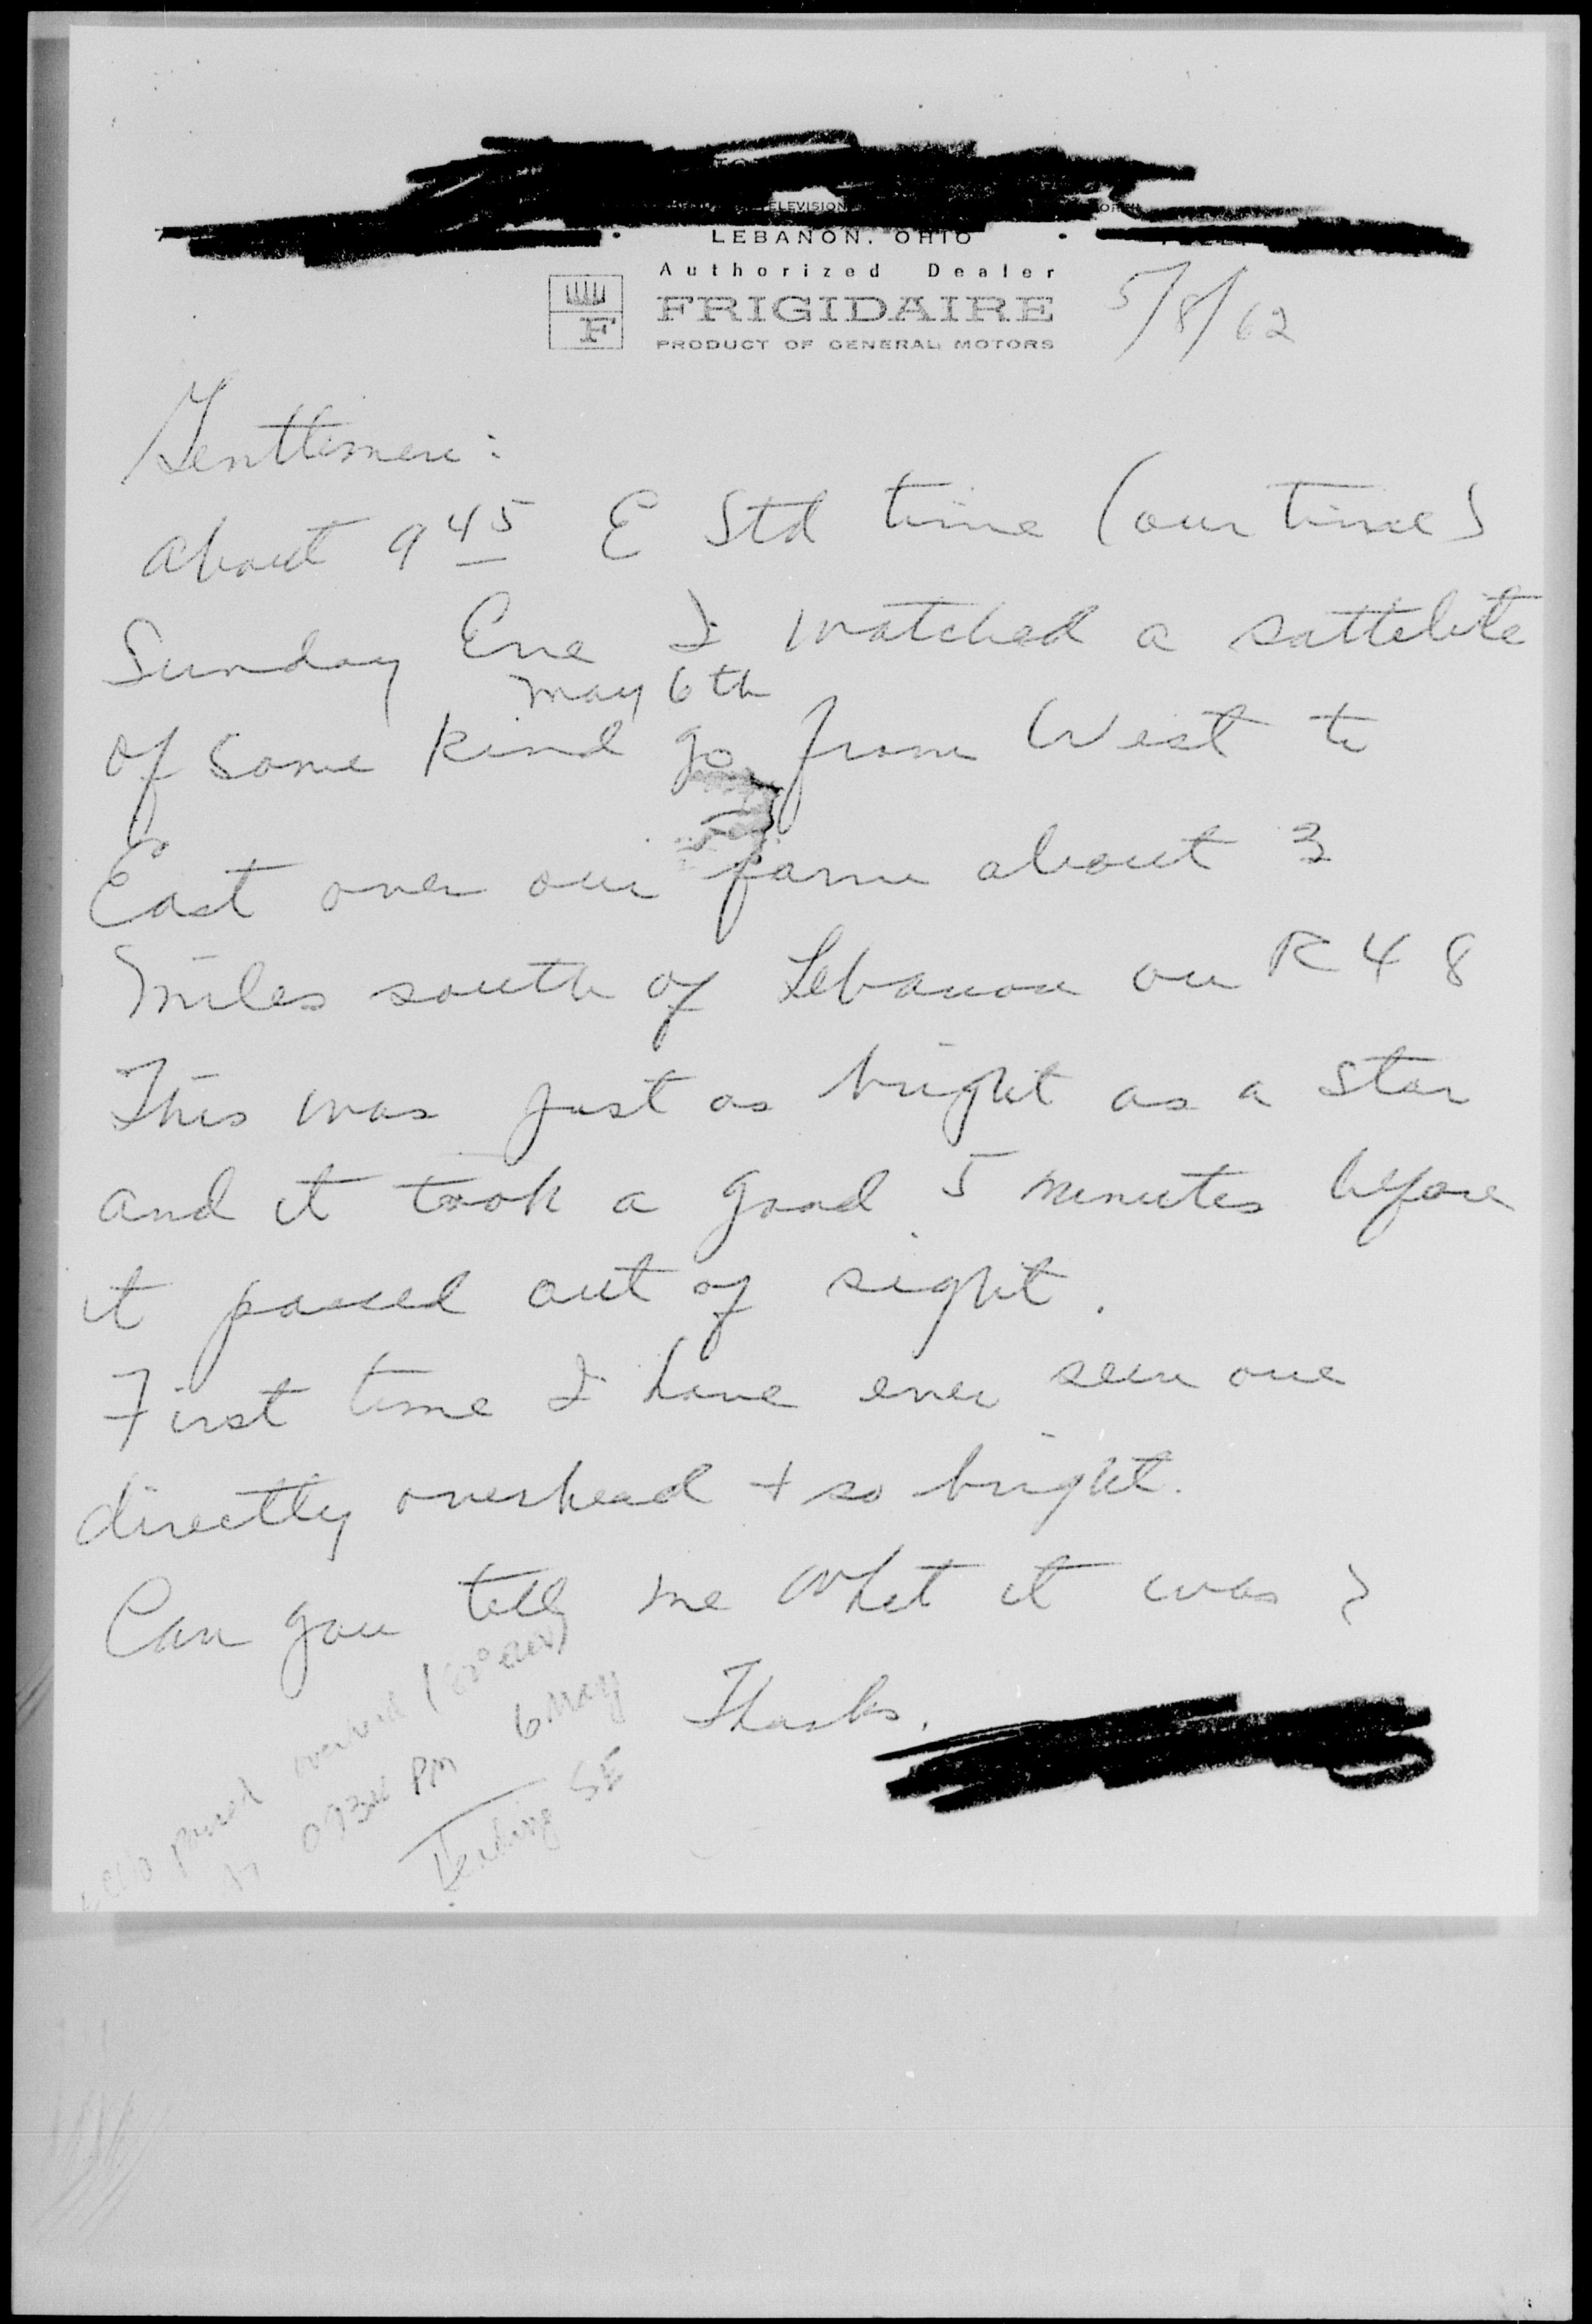 TELEVISION
LEBANON, OHIO
Authorized Dealer
F
FRIGIDAIRE
PRODUCT OF GENERAL MOTORS
5/8/62
Gentlemen:
About 9 45 E Std time (our time)
Sunday Eve I watched a sattelite
May 6th
of some kind go from West to
East over our farm about 3
miles south of Lebanon on R 48
This was just as bright as a star
and it took a good 5 minutes before
it passed out of sight.
First time I have ever seen one
directly overhead + so bright.
Can you tell me what it was ?
Thanks.
passed overhead
PM 6 May
Heading SE